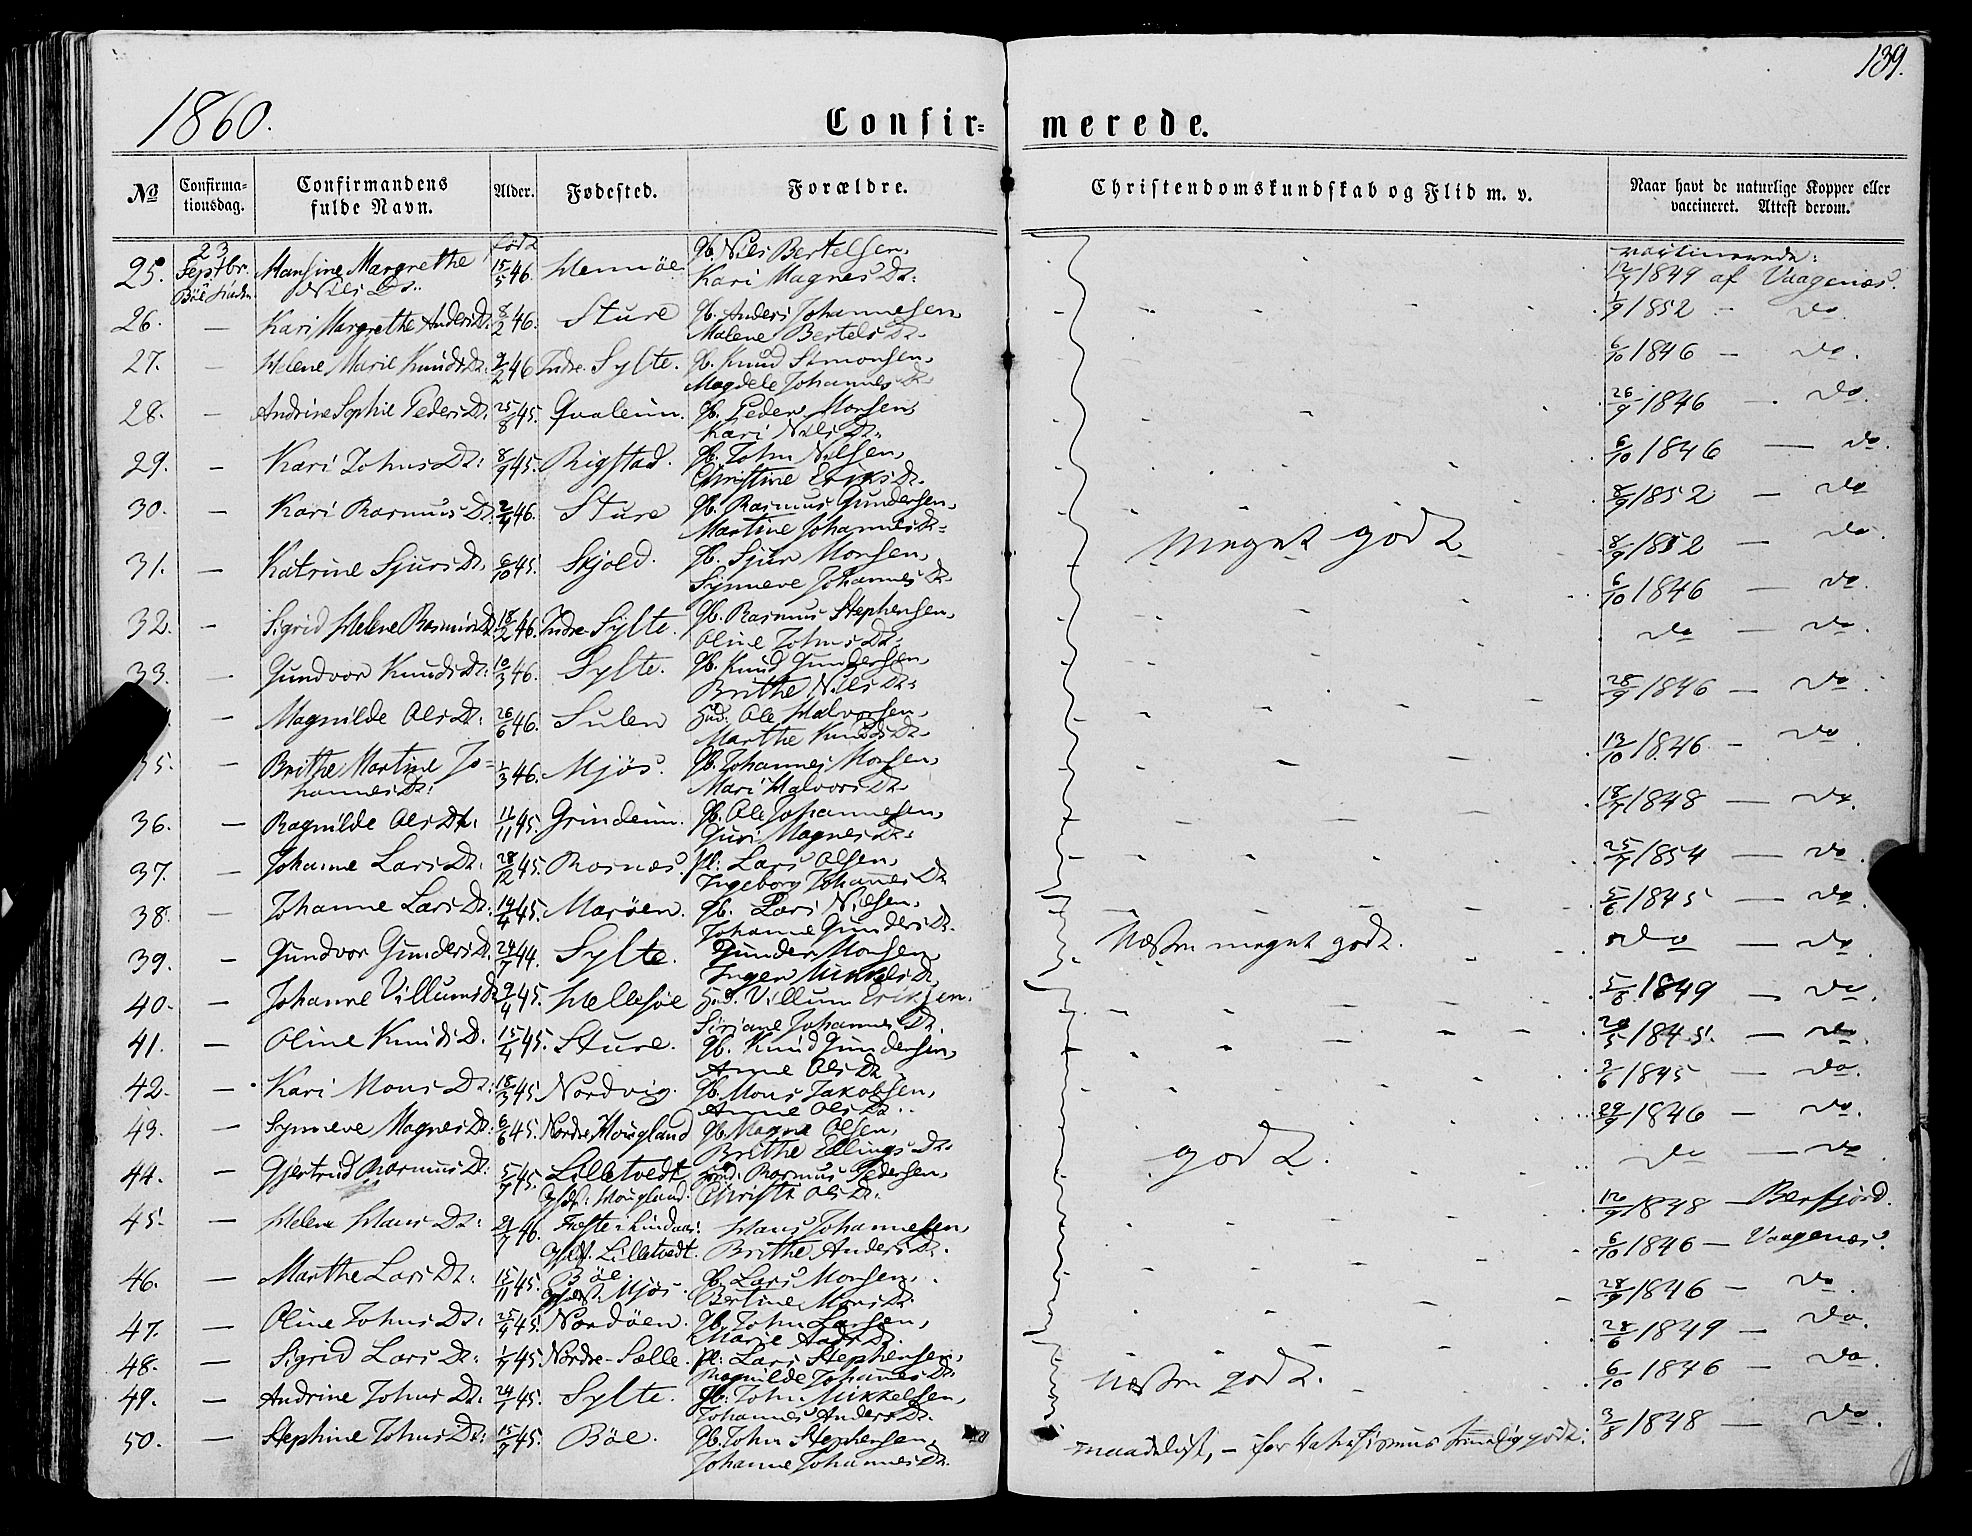 139.
1860.
Confir= merede.
No
Confirma-
tionsdag.
Confirmandens
fulde Navn.
Alder.
Fødested.
Forældre.
Christendomskundskab og Flid m. v.
Naar havt de naturlige Kopper eller
vaccineret. Attest derom.
25. 23 Septbr. Hansine Margrethe Nils Dt: født 15/5 46. Hennöe Gb. Nils Bertelsen, Kari Magnes Dt: vaccinerede: 1849 af Vaagenæs.
26. — Kari Margrethe Anders Dt. 8/2 46. Sture Gb. Anders Johannesen, Malene Bertels Dt. 1/9 1852 - do.
27. — Helene Marie Knuds Dt. 9/2 46 Indre Sylte. Gb. Knud Simonsen, Magdele Johannes Dt 6/10 1846 — do.
28. — Andrine Sophie Peders Dt. 25/8 45. Qvaleim. Gb. Peder Monsen, Kari Nils Dt. 26/9 1846 — do.
29. — Kari Johns Dt: 8/9 45. Rigstad. Gb. John Nilsen, Christine Eriks Dt. 6/10 1846 — do.
30. — Kari Rasmus Dt. 46. Sture Gb. Rasmus Gundersen, Martine Johannes Dt. 8/9 1852 — do
Meget godt
31. — Katrine Sjurs Dt. 6/10 45. Skjold. Gb. Sjur Monsen, Synneve Johannes Dt. 8/9 1852 — do.
32. — Sigrid Helene Rasmus Dt. 18/2 46. Indre Sylte. Gb. Rasmus Stephensen, Oline Johns Dt. 6/10 1846 — do
33. — Gundvor Knuds Dt: 10/3 46. Sylte. Gb. Knud Gundersen, Brithe Nils Dt: do — do.
— Magnilde Ols Dt: 26/6 46. Sulen Hud: Ole Halvorsen, Marthe Knuds Dt. 28/9 1846 — do.
35. — Brithe Martine Jo= hannes Dt: 1/3 46. Mjös. Gb. Johannes Monsen, Mari Halvors Dt. 13/10 1846 - do
36. — Ragnilde Ols Dt. 11/11 45. Grindeim. Gb. Ole Johannesen, Guri Magnes Dt: 1848 — do.
37. — Johanne Lars Dt: 28/12 45. Rosnæs. pl: Lars Olsen, Ingeborg Johannes Dt. 25/7 1854 — do.
38. — Johanne Lars Dt. 19/4 45. Maröen. Gb. Lars Nilsen, Johanne Gunders Dt. 5/6 1845 — do.
Næsten meget godt.
39. — Gundvor Gunders Dt. 24/7 44. Sylte. Gunder Monsen, Inger Mikkels Dt. do — do
40. — Johanne Villums Dt. 9/4 45. Hellesöe Hud. Villum Eriksen. Siriane Johannes Dt. 5/8 1849 — do.
41. — Oline Knuds Dt. 15/4 45. Sture. Gb. Knud Gundersen, Anne Ols Dt. 1845. — do
42. — Kari Mons Dt: 18/3 45. Nordvig. Gb. Mons Jakobsen, Anne Ols Dt. 3/6 1845 — do.
43. — Synneve Magnes Dt: 6/6 45. Nordre Mougland Gb. Magne Olsen, Brithe Ellings Dt. 29/9 1846 — do.
godt.
44. — Gjertrud Rasmus Dt. 5/7 45. Lilletvedt Opfd: Mougland. Huud: Rasmus Pedersen, Christi Ols Dt. do — do
45. — Helene Hans Dt: 46. Fæste i Lindaas: Opfd. Lilletvedt. Hans Johannesen, Brithe Anders Dt. 12/9 1848 — Berfjord.
46. — Marthe Lars Dt: 15/11 45. Böe, Opfødt: Mjös. Gb. Lars Monsen, Bertine Mons Dt. 6/10 1846 — Vaagenæs.
47. — Oline Johns Dt: 25/4 45. Nordöen. Gb. John Larsen, Marie Dt. 28/9 1846 — do.
48. — Sigrid Lars Dt: 45. Nordre-Sælle. pl: Lars Stephensen, Magnilde Johannes Dt. 28/6 1849 — do.
Næsten godt.
49. — Andrine Johns Dt: 24/7 45. Sylte. Gb. John Mikkelsen, Johannes Anders Dt. 6/10 1846 — do.
50. — Stephine Johns Dt: 15/7 45. Böe. Gb. John Stephensen, Johanne Johannes Dt. maadeligt, - for Katekismus temmelig godt. 3/8 1848 — do.